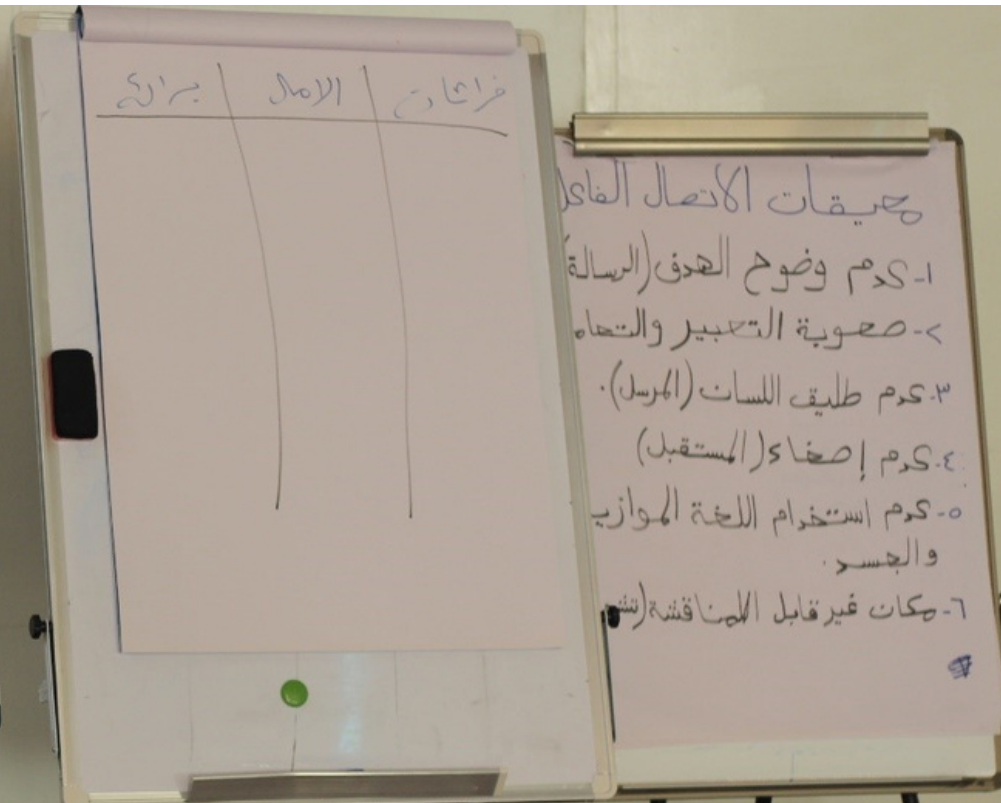 الامال
معيقات الاتصال الفاعل
١- عدم وضوح الهدف (الرسالة)
٢- صعوبة التعبير والتعام
٣- عدم طليق اللسان (المرسل).
٤- عدم إصغاء (المستقبل)
٥- عدم استخدام اللغة الموازي
والجسد.
٦- مكان غير قابل للمناقشة (تش